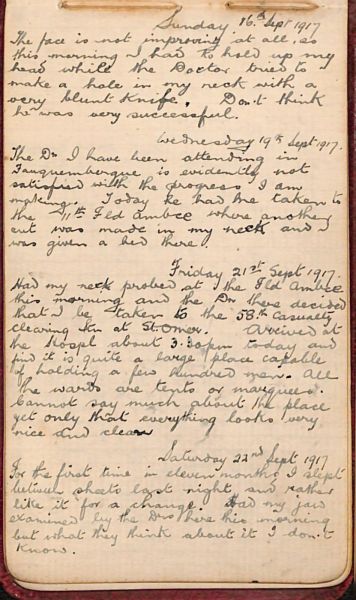 Sunday 16th Sept 1917
The face is not improving at all, so
this morning I had to hold up my
head while the Doctor tried to
make a hole in my neck with a
very blunt knife. Don't think
he was very successful.
Wednesday 19th Sept 1917.
The Dr I have been attending in
Fauquembergue is evidently not
satisfied with the progress I am
making. Today he had me taken to
the 11th Fld Ambce where another
cut was made in my neck and I
was given a bed there.
Friday 21st Sept 1917.
Had my neck probed at the Fld Ambce
this morning and the Drs there decided
that I be taken to the 58th Casualty
clearing stn at St. Omer. Arrived at
the Hospl about 3.30pm today and
find it is quite a large place capable
of holding a few hundred men. All
the wards are tents or marquees.
Cannot say much about the place
yet only that everything looks very
nice and clean
Saturday 22nd Sept 1917
For the first time in eleven months I slept
between sheets last night and rather
like it for a change. Had my jaw
examined by the Drs here this morning
but what they think about it I don't
know.